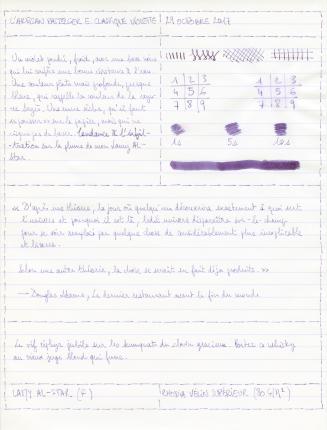 L'ARTISAN PASTELLIER E. CLASSIQUE VIOLETTE
29 OCTOBRE 2017
Un violet foncé, avec une base
qui lui confère une bonne résistance à l'eau.
Une couleur plutôt mais profonde, presque
qui rappelle la couleur de la
Une encre sèche, qui
sur le papier, mais qui ne
Tendance à l'
sur la plume de mon Lamy Al-
Star.
1 2 3
4 5 6
7 8 9
1 2 3
4 5 6
7 8 9
1s 5s 10s
« D'après une théorie, le jour où quelqu'un découvrira exactement à quoi sert
l'univers et pourquoi il est là, ledit univers disparaîtra sur-le-champ
pour se voir remplacé par quelque chose de considérablement plus inexplicable
et bizarre.
Selon une autre théorie, la chose se serait en fait déjà produite. »
— Douglas Adams, Le dernier restaurant avant la fin du monde
Le vif zéphyr jubile sur les kumquats du clown gracieux. Portez ce whisky
au vieux juge blond qui fume.
LAMY AL-STAR (F)
RHODIA VELIN SUPÉRIEUR (90 G/M²)